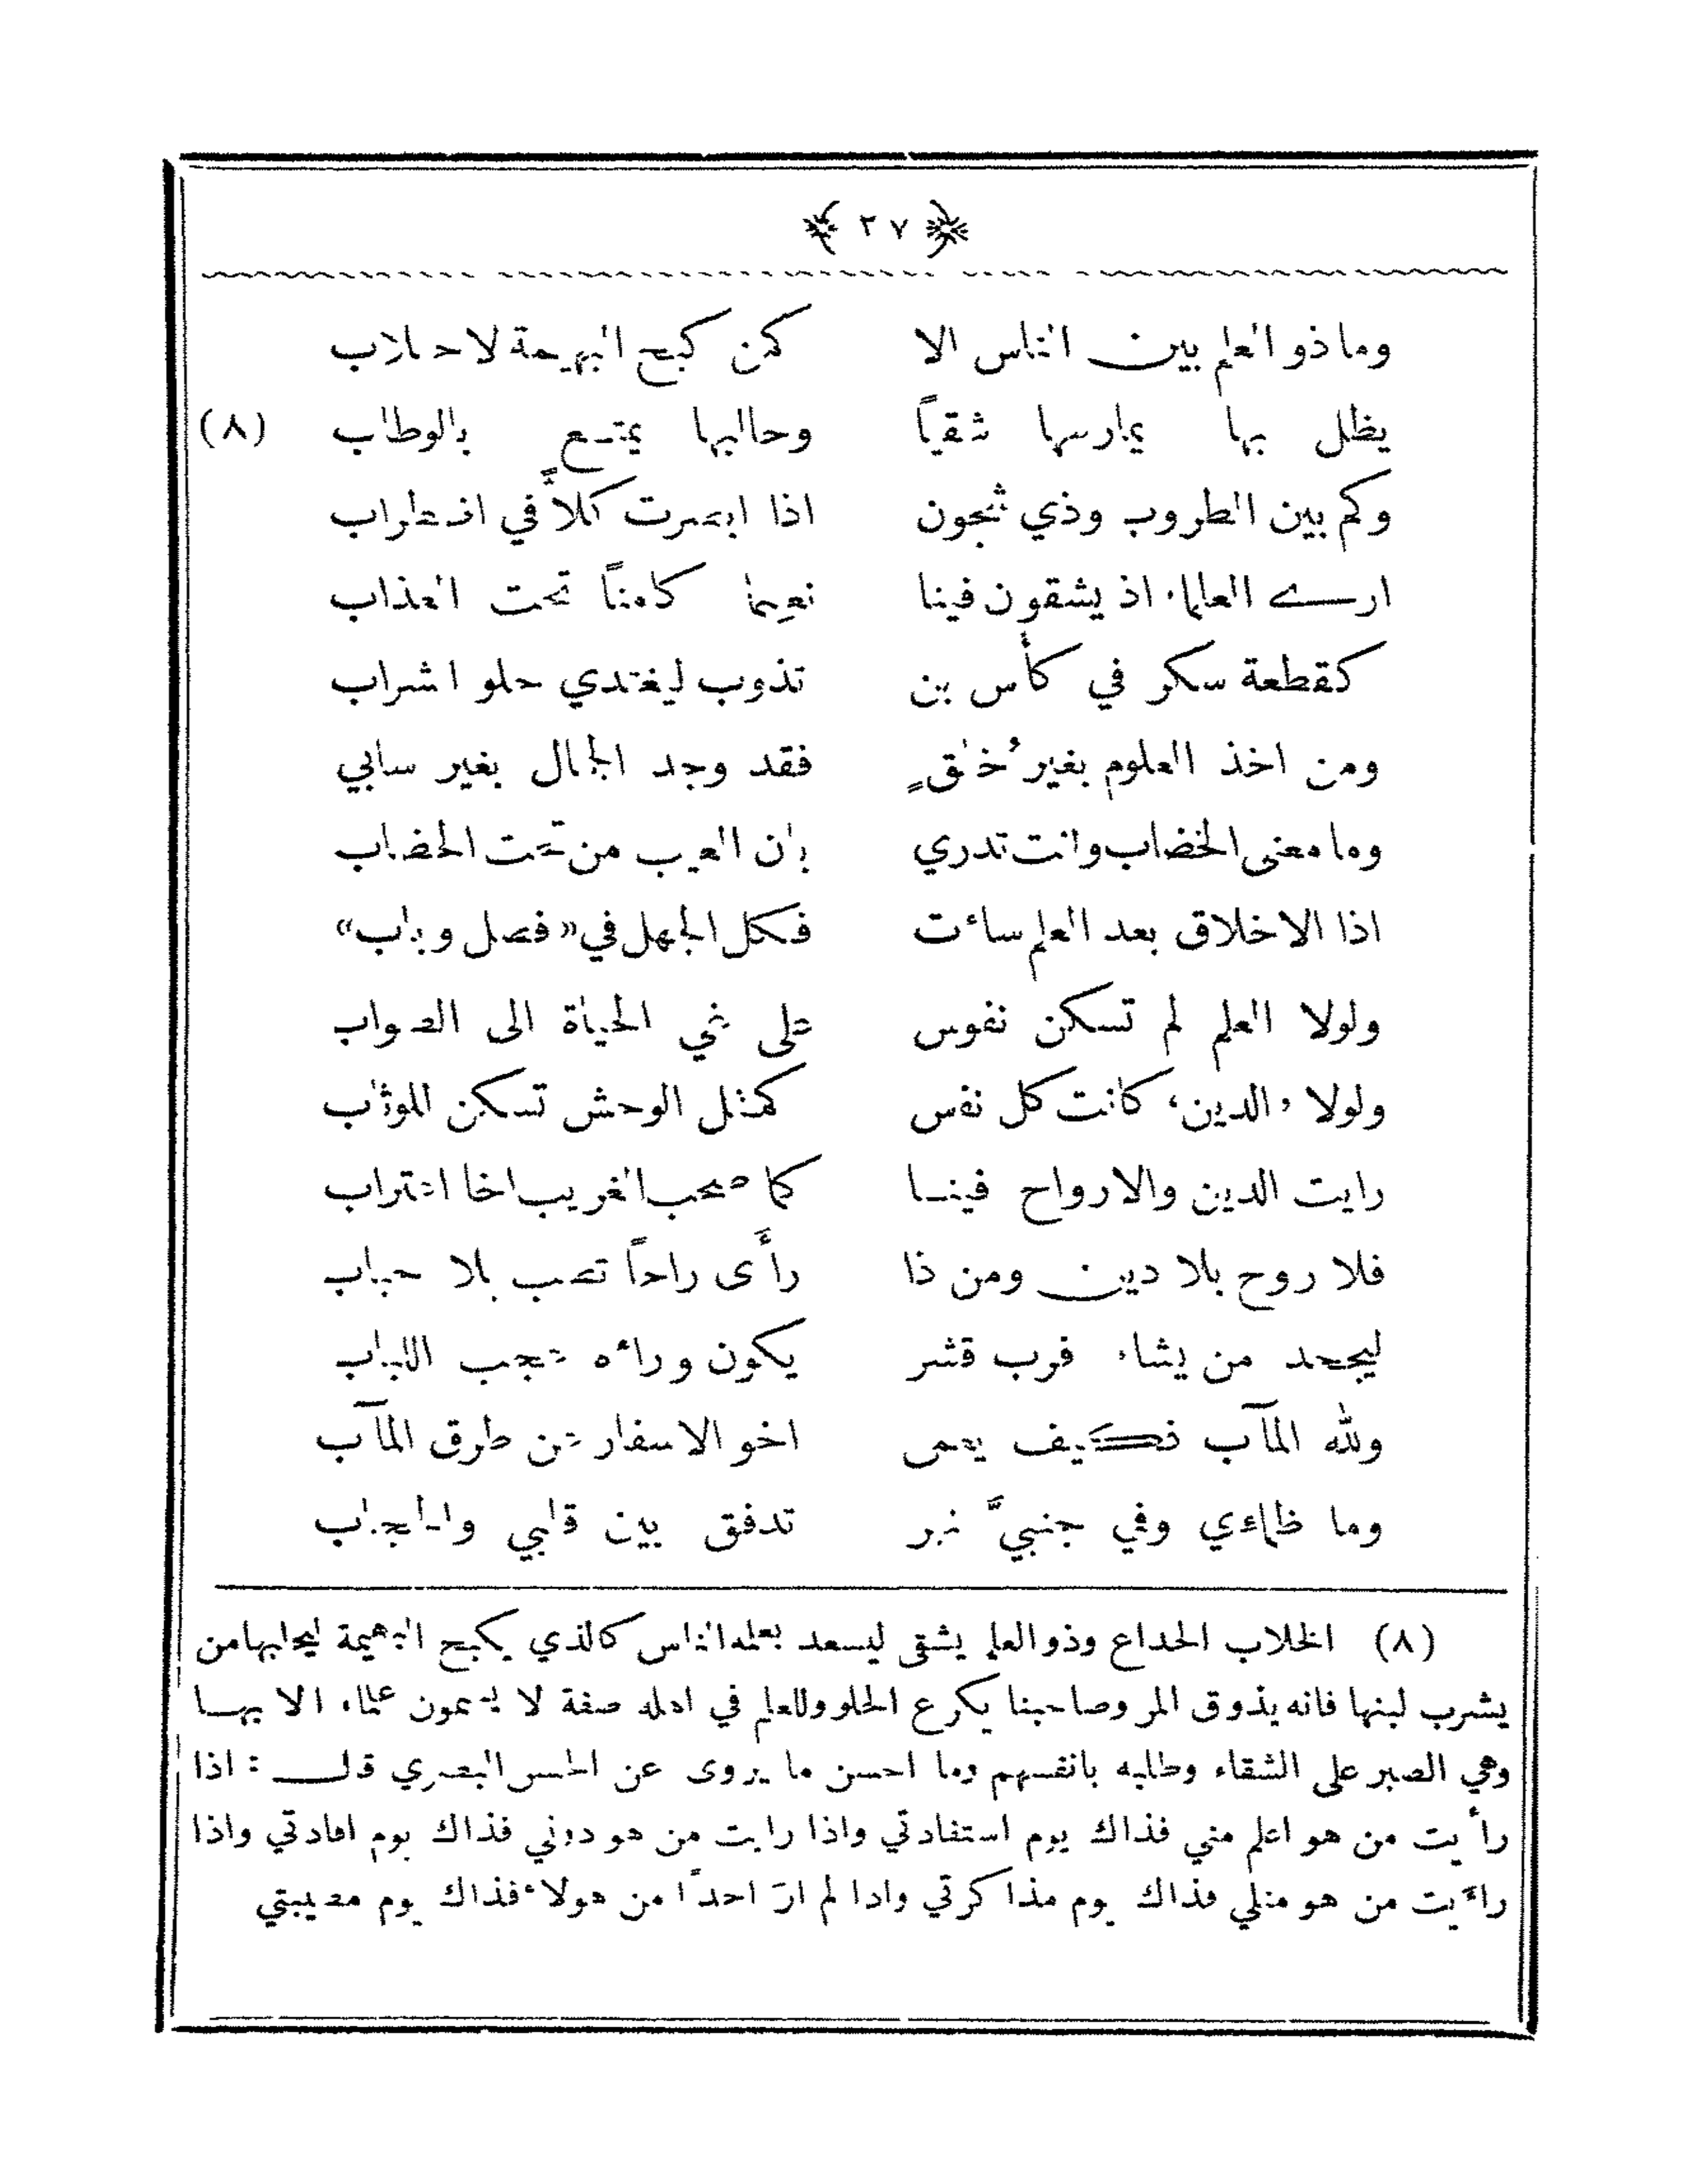 ٢٧
وما ذو العلم بين الناس الا كمن كبح البهيمة لاحلاب
يظل بها يمارسها شقياً وحالبها يمتع بالوطاب (٨)
وكم بين الطروب وذي شجون اذا ابصرت كلاًّ في اضطراب
ارى العلماء اذ يشقون فينا نعيما كامناً تحت العذاب
كقطعة سكر في كأس بن تذوب ليغتدي حلو الشراب
ومن اخذ العلوم بغير خُلقٍ فقد وجد الجمال بغير سابي
وما معنى الخضاب وانت تدري بان العيب من تحت الخضاب
اذا الاخلاق بعد العلم ساءت فكل الجهل في «فصل وباب»
ولولا العلم لم تسكن نفوس على غي الحياة الى الصواب
ولولا «الدين» كانت كل نفس كمثل الوحش تسكن للوثاب
رايت الدين والارواح فينا كما صحب الغريب اخا اغتراب
فلا روح بلا دين ومن ذا رأَى راحاً تصب بلا حباب
ليجحد من يشاء فرب قشر يكون وراءه عجب اللباب
ولله المآب فكيف يعمى اخو الاسفار عن طرق المآب
وما ظماءي وفي جنبيَّ نهر تدفق بين قلبي والحجاب
(٨) الخلاب الخداع وذو العلم يشقى ليسعد بعلمه الناس كالذي يكبح البهيمة ليحلبها من
يشرب لبنها فانه يذوق المر وصاحبنا يكرع الحلو وللعلم في اهله صفة لا يسمون علماء الا بهـا
وهي الصبر على الشقاء وطلبه بانفسهم وما احسن ما يروى عن الحسن البصري قال : اذا
رأيت من هو اعلم مني فذاك يوم استفادتي واذا رايت من هو دوني فذاك يوم افادتي واذا
راءيت من هو مثلي فذاك يوم مذاكرتي واذا لم ارَ احداً من هولاء فذاك يوم مصيبتي